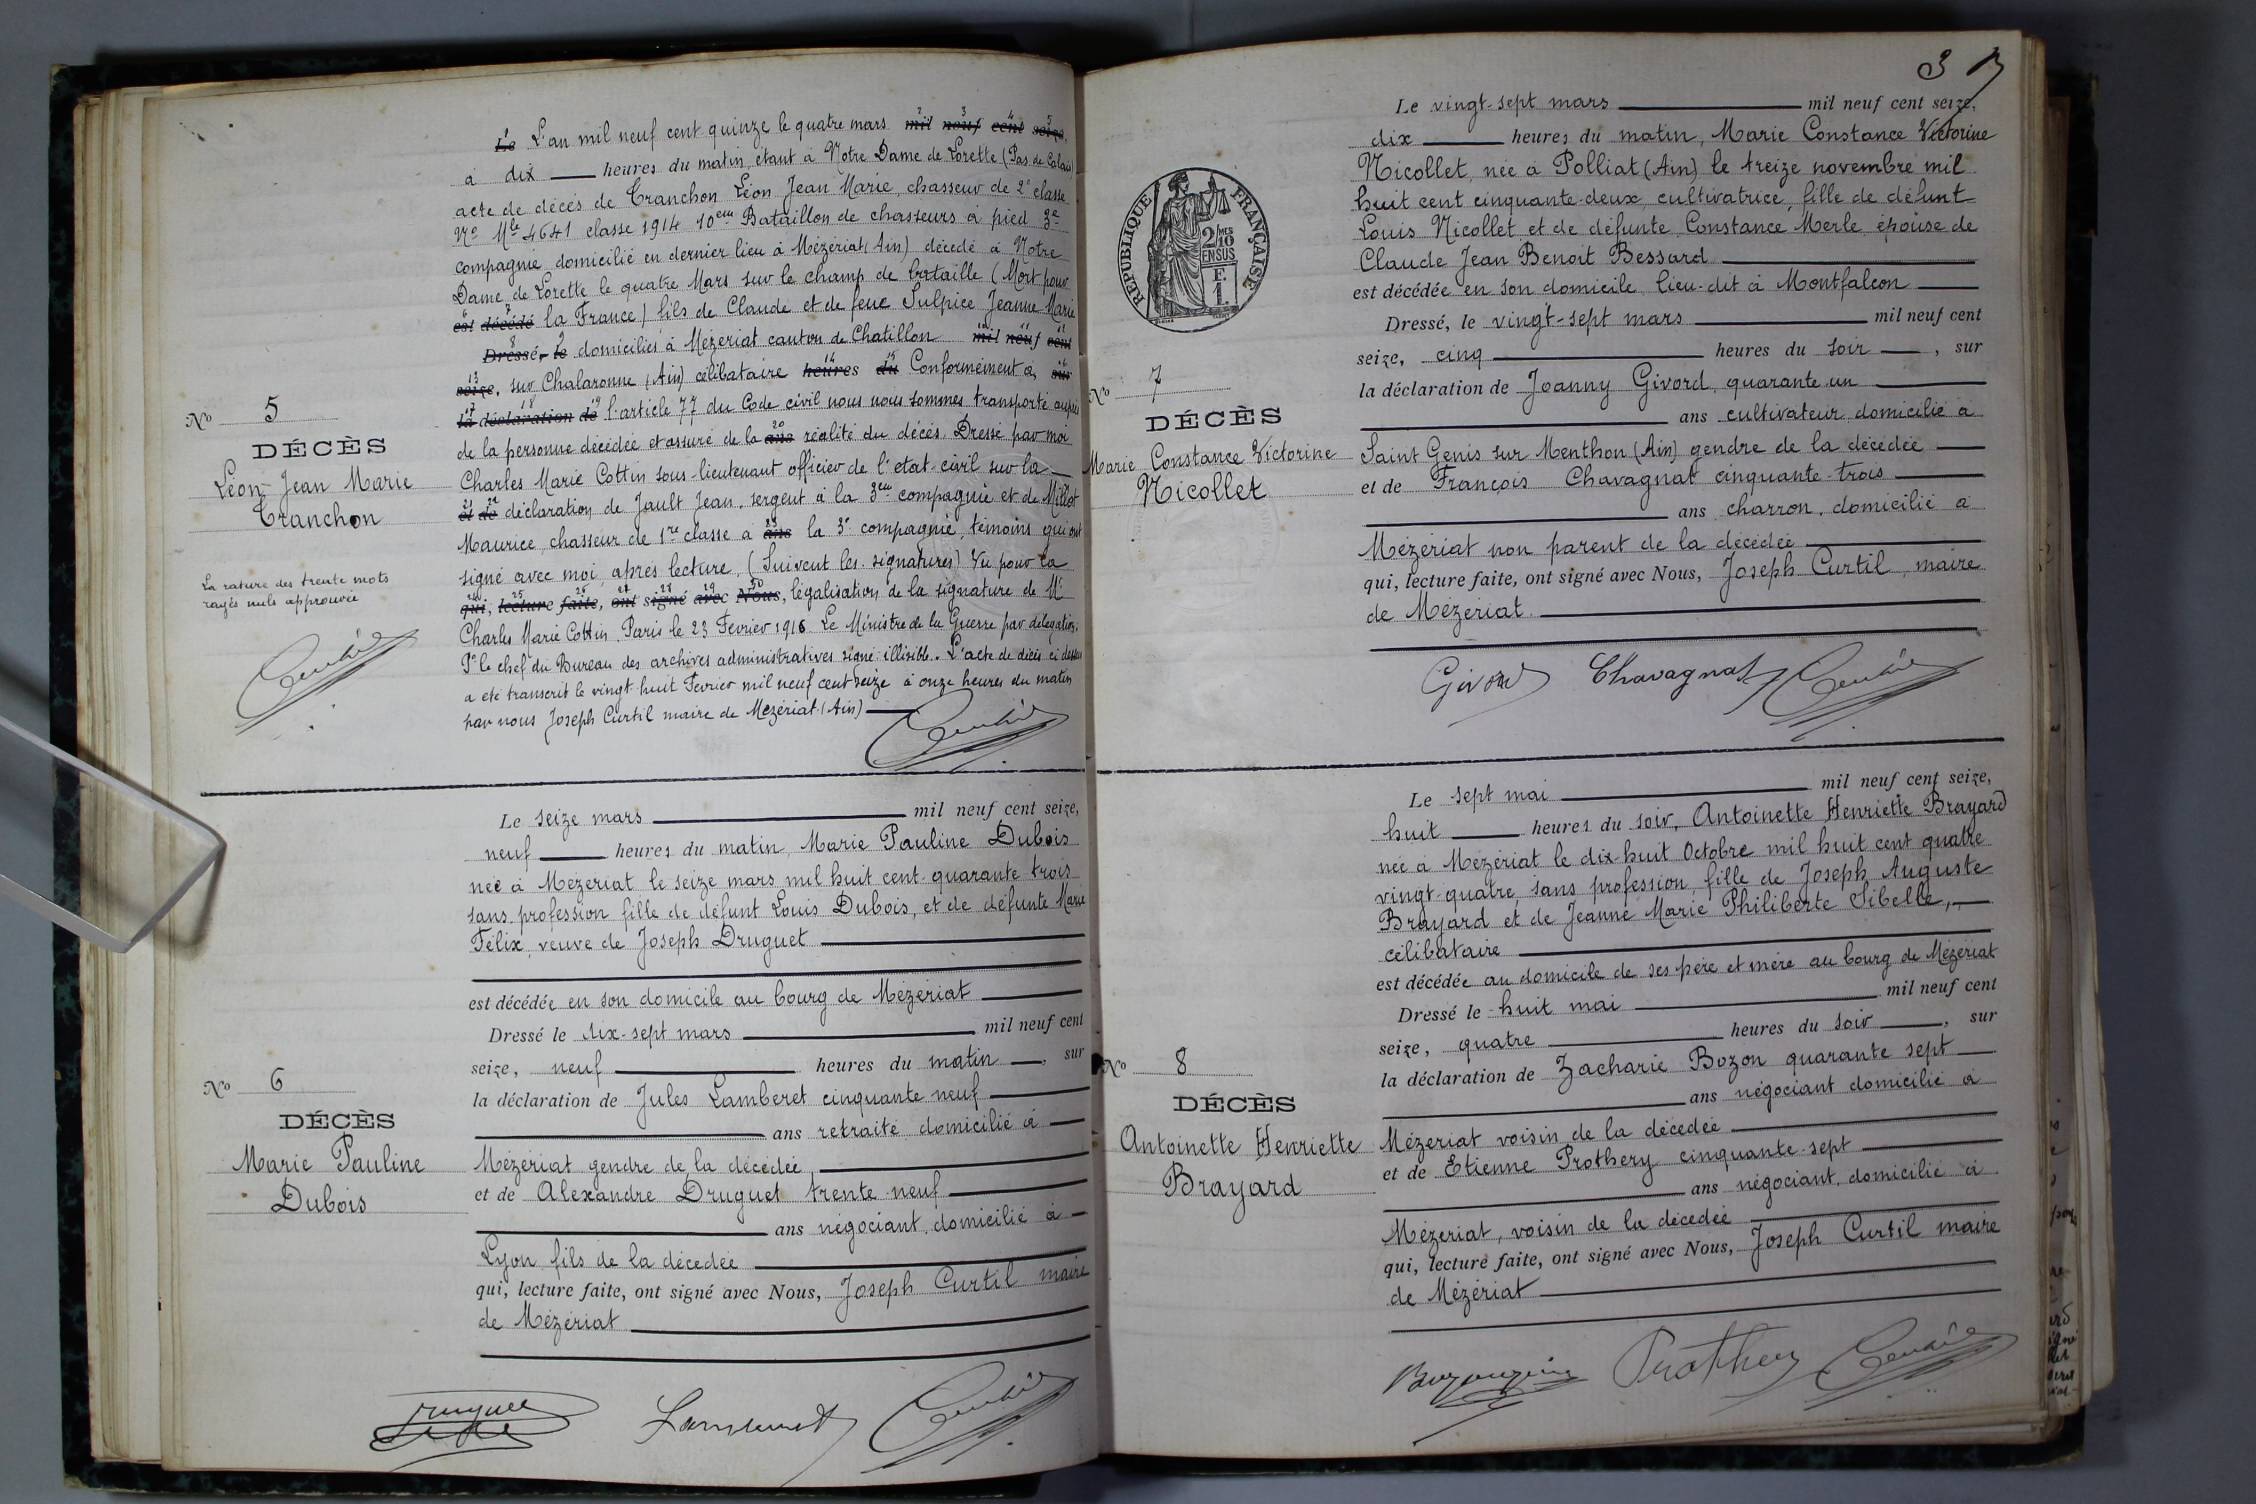 Le L'an mil neuf cent quinze le quatre mars mil neuf cent seize,
à dix heures du matin, étant à Notre Dame de Lorette (Pas de Calais)
acte de décès de Tranchon Léon Jean Marie, chasseur de 2e classe
No Mle 4641 classe 1914 10eme Bataillon de chasseurs à pied 3e
compagnie domicilié en dernier lieu à Mézériat (Ain) décédé à Notre
Dame de Lorette le quatre Mars sur le champ de bataille (Mort pour
est décédé la France) fils de Claude et de feue Sulpice Jeanne Marie
Dressé, le domiciliés à Mézériat canton de Chatillon mil neuf cent
seize, sur Chalaronne (Ain) célibataire heures du Conformément à, sur
la déclaration de l'article 77 du Code civil nous nous sommes transporté auprès
de la personne décédée et assuré de la ans réalité du décès. Dressé par moi
Charles Marie Cottin sous-lieutenant officier de l'état-civil sur la
et de déclaration de Jault Jean, sergent à la 3eme compagnie et de Millot
Maurice, chasseur de 1re classe à ans la 3e compagnie, témoins qui ont
signé avec moi après lecture. (Suivent les signatures) Vu pour la
qui, lecture faite, ont signé avec Nous, légalisation de la signature de Mr
Charles Marie Cottin. Paris le 23 Fevrier 1916 Le Ministre de la Guerre par délégation.
Pr le chef du Bureau des archives administratives signé: illisible. L'acte de décès ci dessus
a été transcrit le vingt huit Fevrier mil neuf cent seize à onze heures du matin
par nous Joseph Curtil maire de Mézériat (Ain)
No 5
DÉCÈS
Léon Jean Marie
Tranchon
La rature des trente mots
rayés nuls approuvée
Le seize mars mil neuf cent seize,
neuf heures du matin, Marie Pauline Dubois
née à Mézériat le seize mars mil huit cent quarante trois
sans profession fille de défunt Louis Dubois, et de défunte Marie
Félix, veuve de Joseph Druguet
est décédée en son domicile au bourg de Mézériat
Dressé le dix-sept mars mil neuf cent
seize, neuf heures du matin, sur
la déclaration de Jules Lamberet cinquante neuf
ans retraité domicilié à
Mézériat gendre de la décédée
et de Alexandre Druguet trente neuf
ans négociant, domicilié à
Lyon fils de la décédée
qui, lecture faite, ont signé avec Nous, Joseph Curtil maire
de Mézériat
No 6
DÉCÈS
Marie Pauline
Dubois
3
RÉPUBLIQUE FRANÇAISE
2/MES
10
EN SUS
F.
1.
Le vingt-sept mars mil neuf cent seize,
dix heures du matin, Marie Constance Victorine
Nicollet, née à Polliat (Ain) le treize novembre mil
huit cent cinquante-deux, cultivatrice, fille de défunt
Louis Nicollet et de défunte Constance Merle, épouse de
Claude Jean Benoit Bessard
est décédée en son domicile, lieu-dit à Montfalcon
Dressé, le vingt-sept mars mil neuf cent
seize, cinq heures du soir, sur
la déclaration de Joanny Givord, quarante un
ans cultivateur, domicilié à
Saint Genis sur Menthon (Ain) gendre de la décédée
et de François Chavagnat cinquante-trois
ans charron, domicilié à
Mézériat non parent de la décédée
qui, lecture faite, ont signé avec Nous, Joseph Curtil, maire
de Mézériat.
Givord Chavagnat
No 7
DÉCÈS
Marie Constance Victorine
Nicollet
Le sept mai mil neuf cent seize,
huit heures du soir, Antoinette Henriette Brayard
née à Mézériat le dix-huit Octobre mil huit cent quatre
vingt-quatre, sans profession, fille de Joseph Auguste
Brayard et de Jeanne Marie Philiberte Sibelle,
célibataire
est décédée au domicile de ses père et mère au bourg de Mézériat
Dressé le huit mai mil neuf cent
seize, quatre heures du soir, sur
la déclaration de Zacharie Bozon quarante sept
ans négociant domicilié à
Mézériat voisin de la décédée
et de Etienne Prothery cinquante-sept
ans négociant, domicilié à
Mézériat, voisin de la décédée
qui, lecture faite, ont signé avec Nous, Joseph Curtil maire
de Mézériat
Prothery
No 8
DÉCÈS
Antoinette Henriette
Brayard